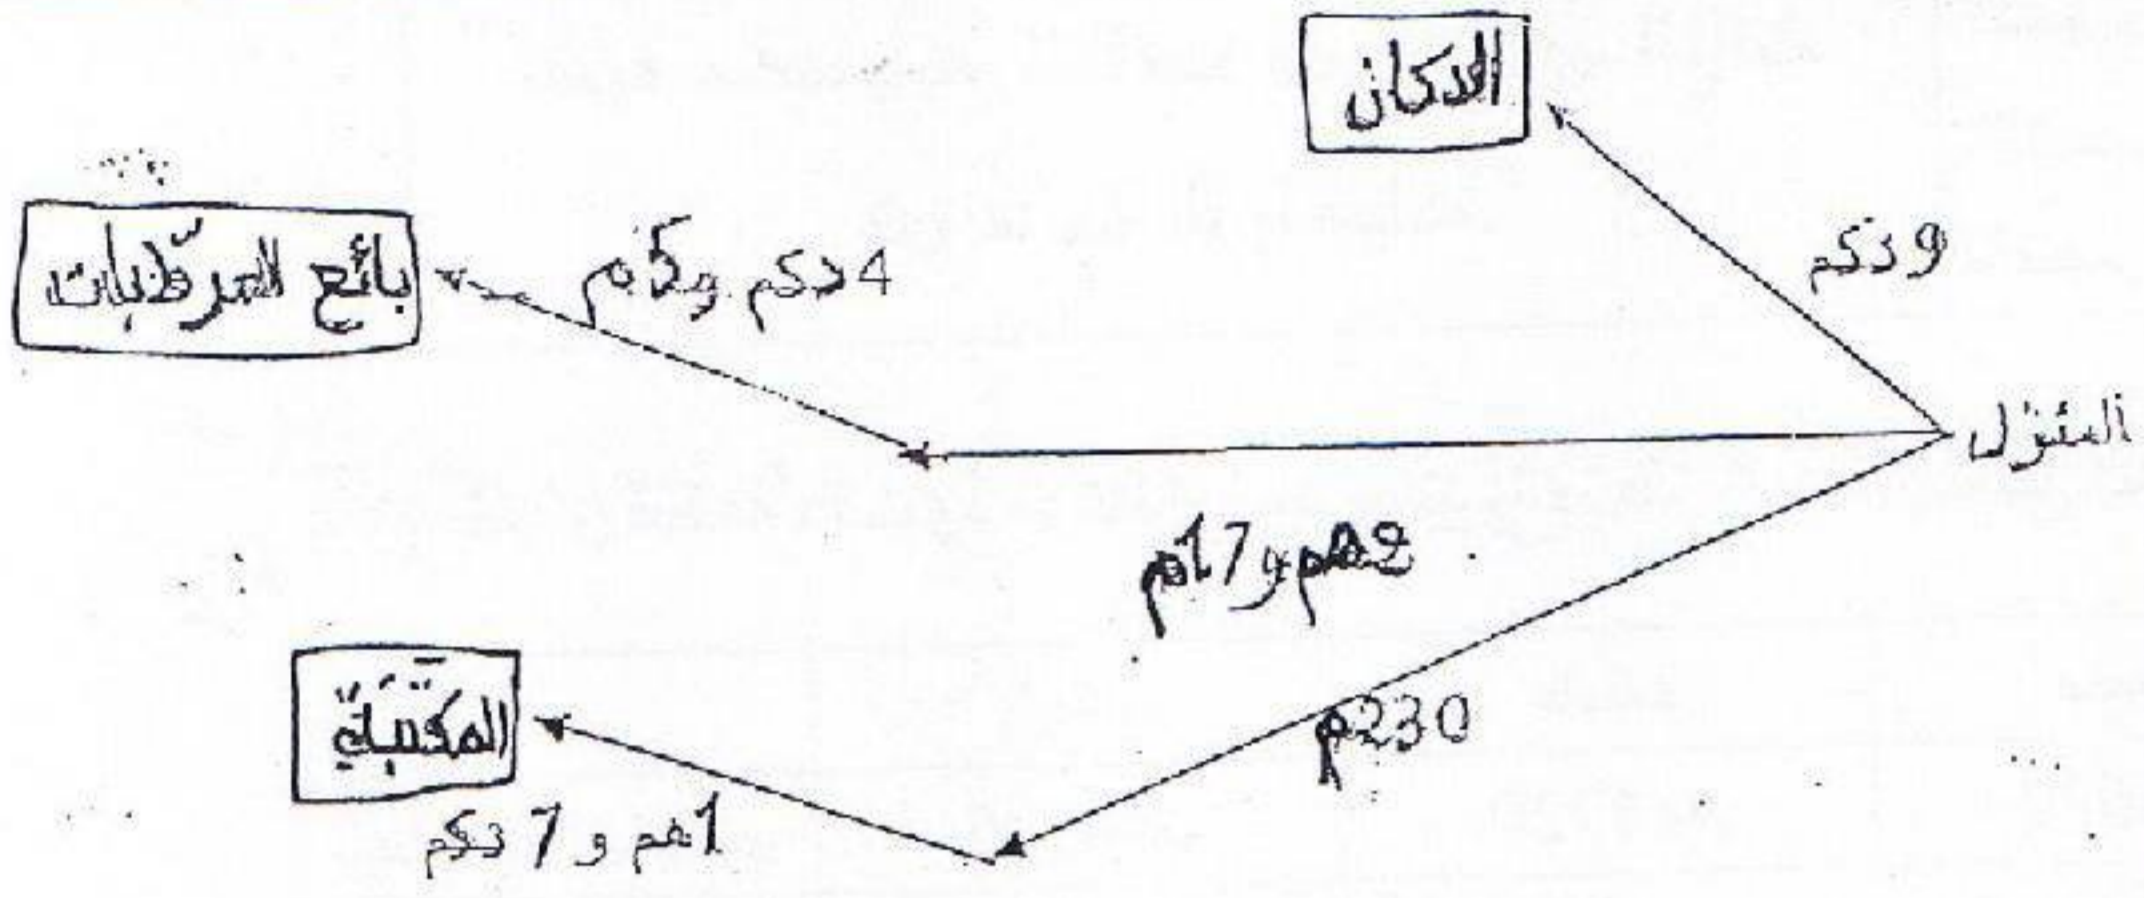 الدكان
9 دكم
بائع المرطبات
4 دكم و 5 م
المنزل
2 هم و 17 م
230 م
المكتبة
1 هم و 7 دكم